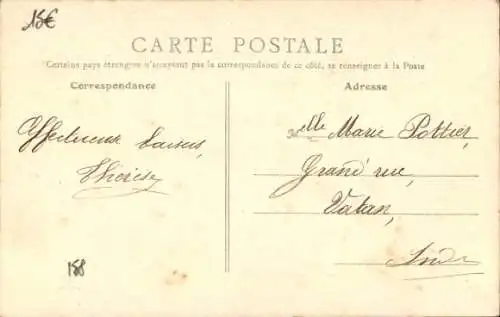 15€
CARTE POSTALE
Certains pays étrangers n'acceptant pas la correspondance de ce côté, se renseigner à la Poste
Correspondance
Adresse
Affectueux baisers,
Thérèse
Mlle Marie Pottier,
Grand' rue,
Vatan,
Indre
158